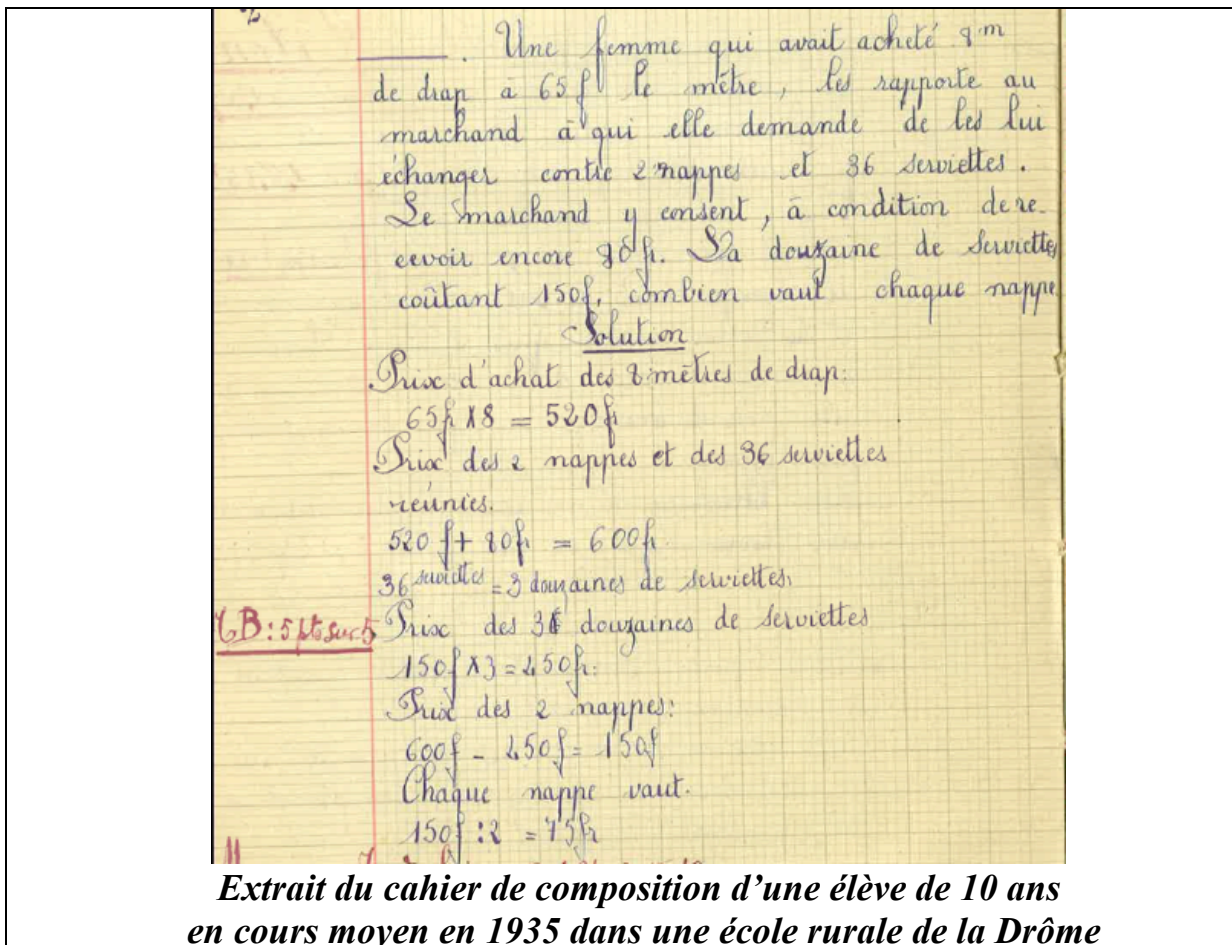 Une femme qui avait acheté 8m
de drap à 65f le mètre, les rapporte au
marchand à qui elle demande de les lui
échanger contre 2 nappes et 36 serviettes.
Le marchand y consent, à condition de re-
cevoir encore 80fr. La douzaine de serviettes
coûtant 150f, combien vaut chaque nappe
Solution
Prix d'achat des 8 mètres de drap:
65fr x 8 = 520fr
Prix des 2 nappes et des 36 serviettes
réunies.
520f + 80fr = 600fr
36 serviettes = 3 douzaines de serviettes.
TB: 5 pts sur 5 Prix des 3 douzaines de serviettes
150f x 3 = 450fr.
Prix des 2 nappes:
600f - 450f = 150f
Chaque nappe vaut.
150f : 2 = 75fr
Extrait du cahier de composition d'une élève de 10 ans
en cours moyen en 1935 dans une école rurale de la Drôme